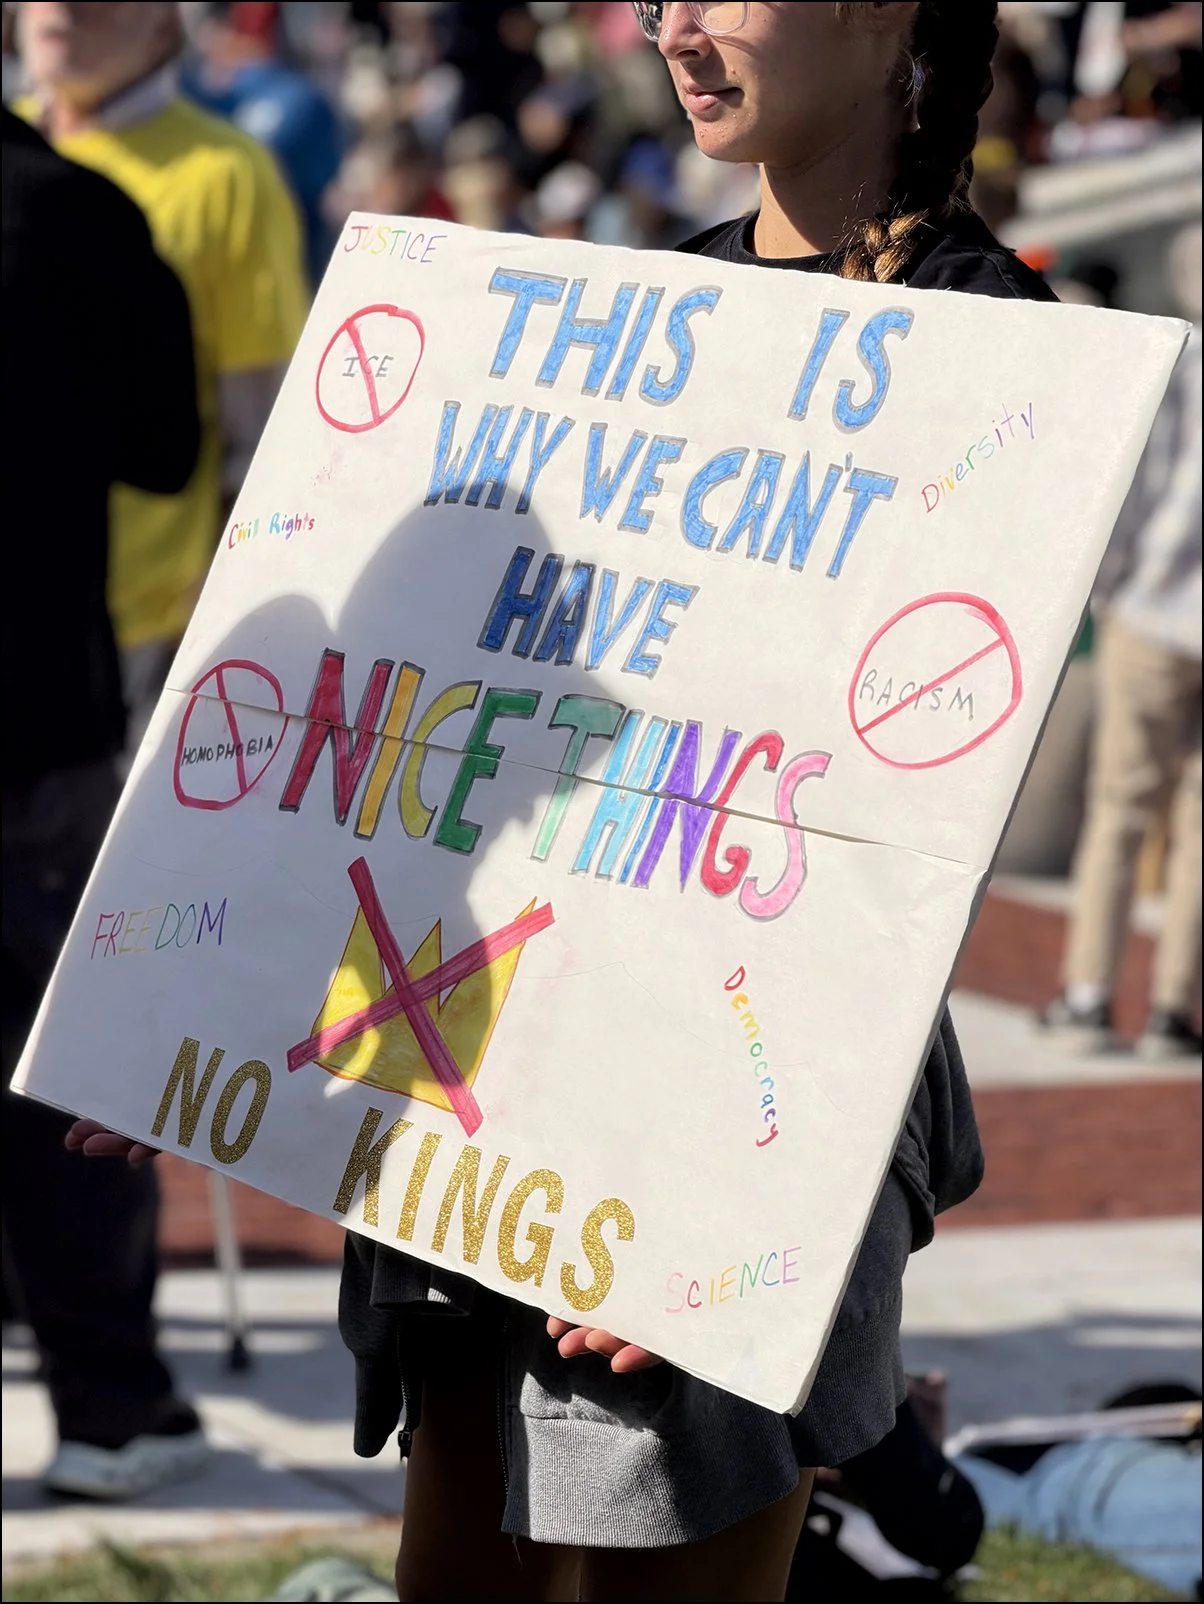 JUSTICE
THIS IS
ICE
WHY WE CAN'T
Diversity
Civil Rights
HAVE
RACISM
HOMOPHOBIA
NICE THINGS
FREEDOM
Democracy
NO KINGS
SCIENCE